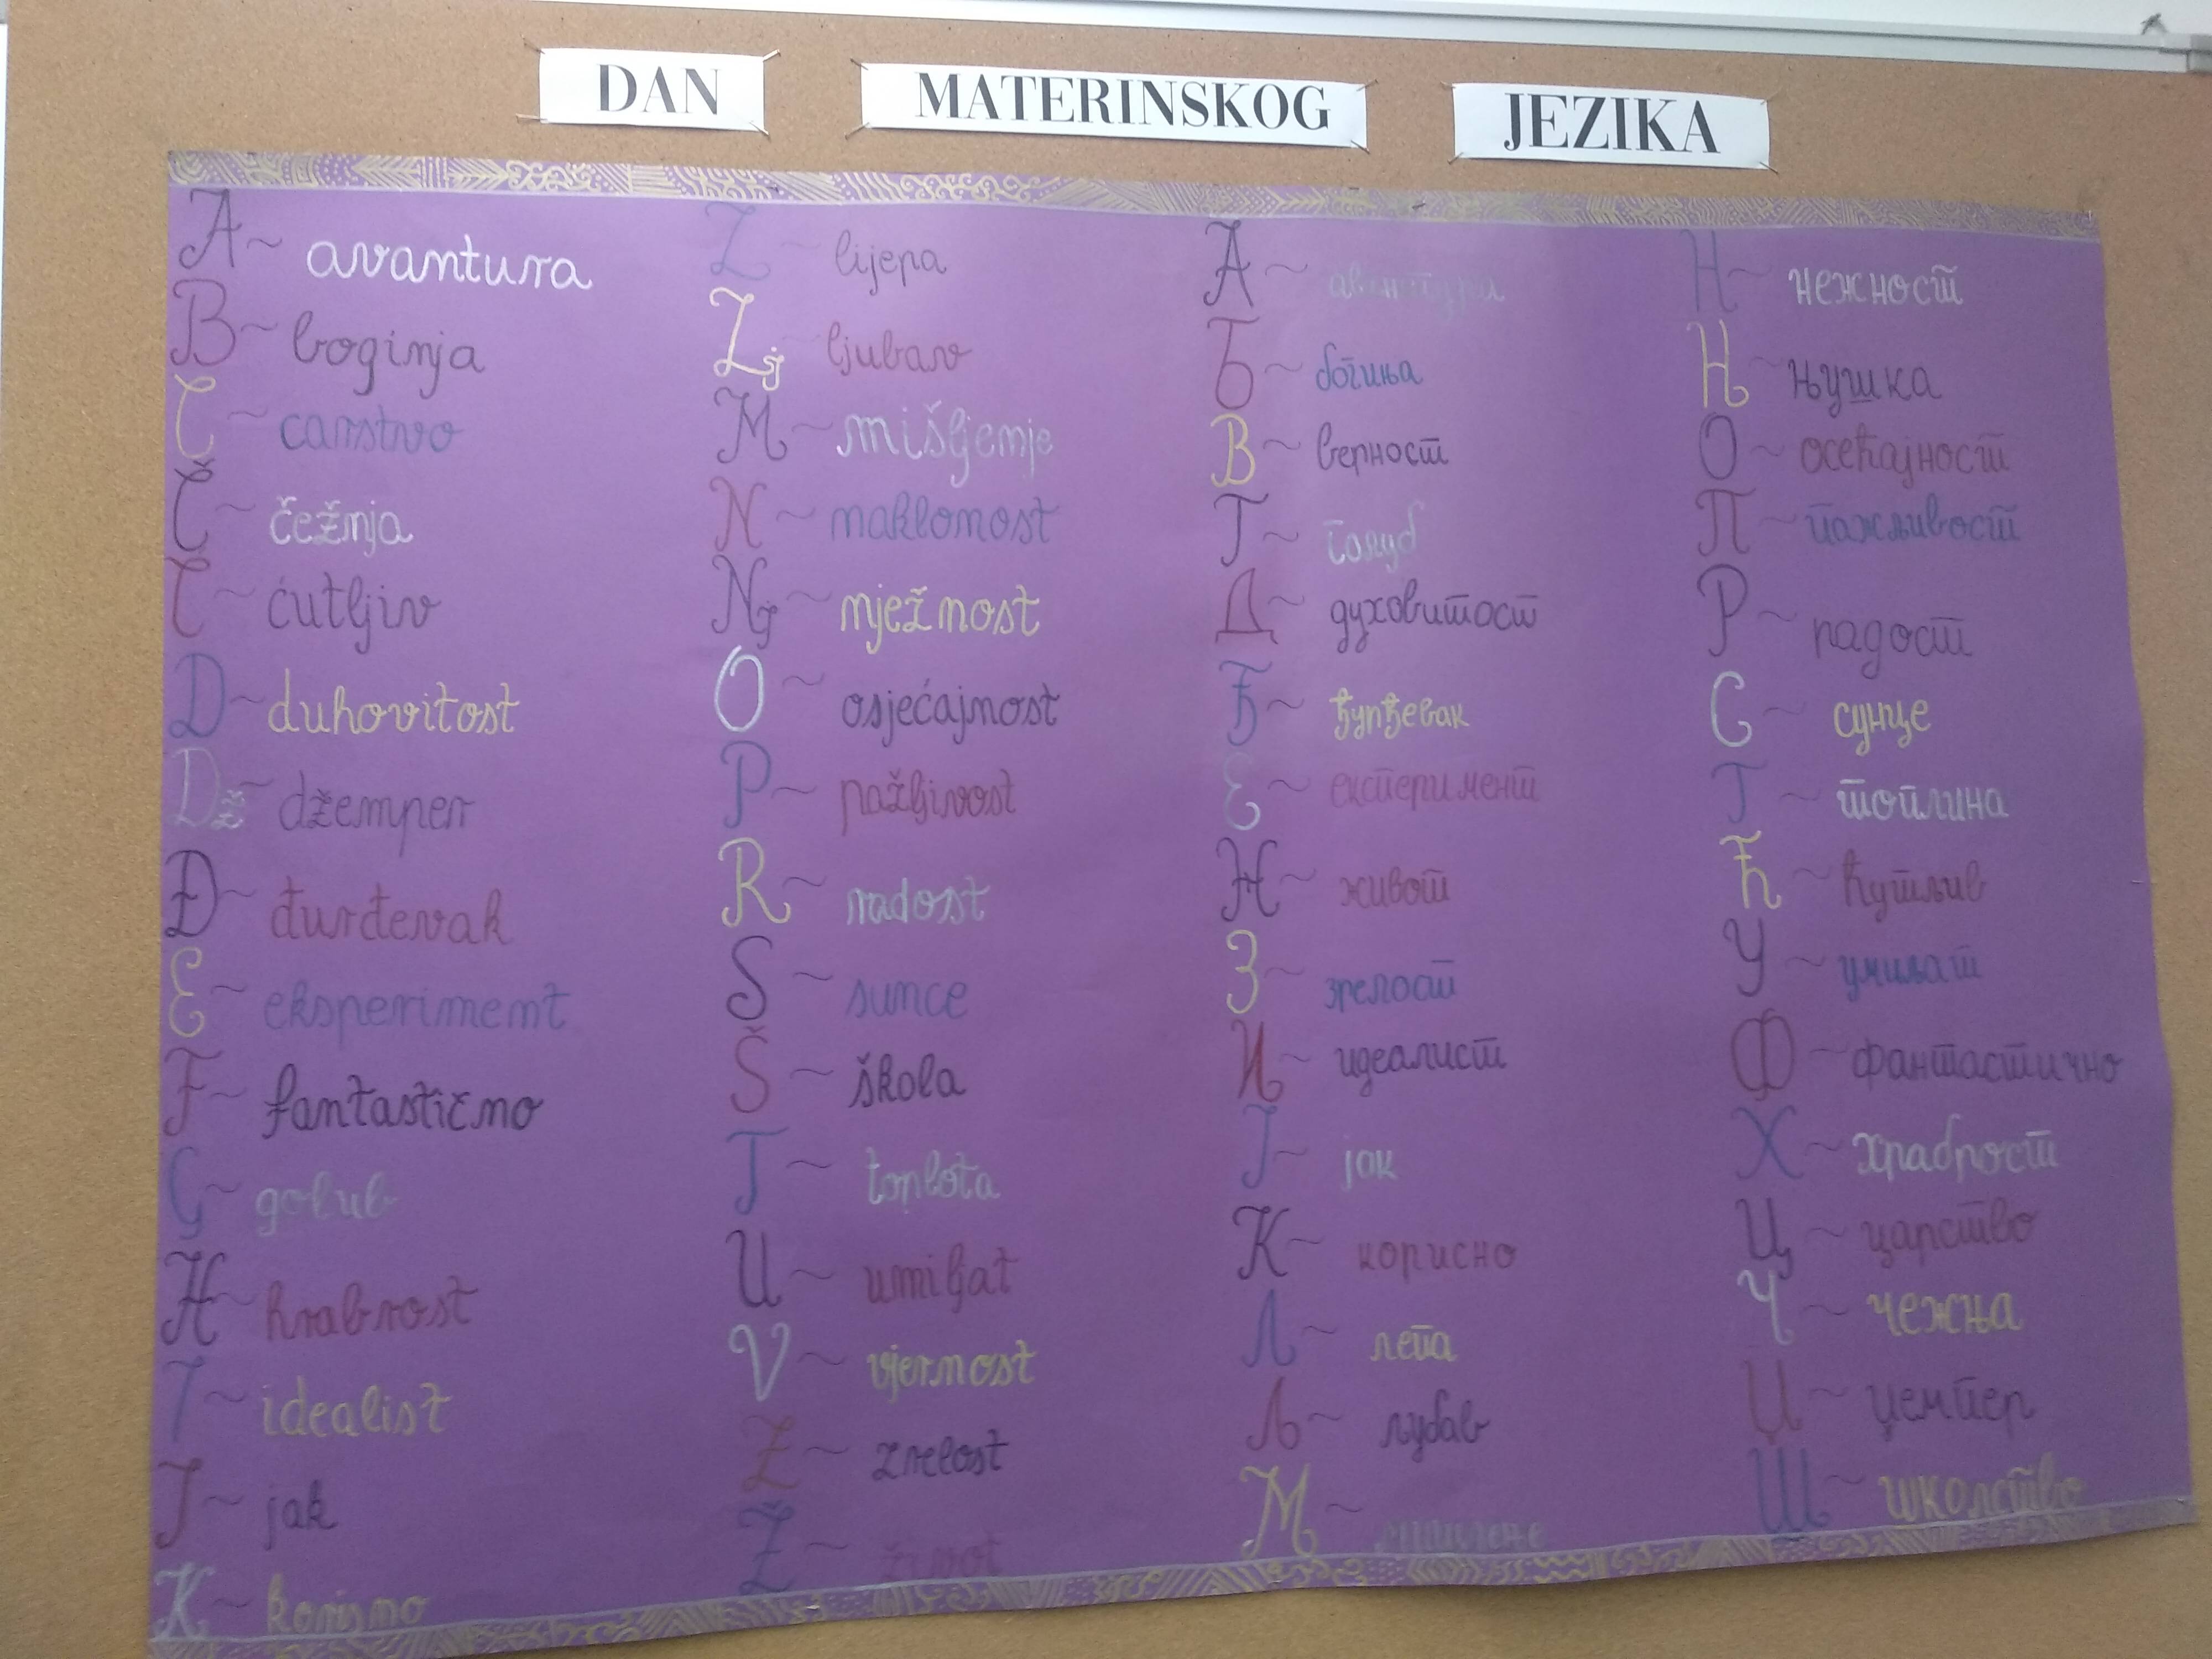 DAN MATERINSKOG JEZIKA
A ~ avantura
B ~ boginja
C ~ carstvo
Č ~ čežnja
Ć ~ ćutljiv
D ~ duhovitost
Dž ~ džemper
Đ ~ đurđevak
E ~ eksperiment
F ~ fantastično
G ~ golub
H ~ hrabrost
I ~ idealist
J ~ jak
K ~ korisno
L ~ lijepa
Lj ~ ljubav
M ~ mišljenje
N ~ naklonost
Nj ~ nježnost
O ~ osjećajnost
P ~ pažljivost
R ~ radost
S ~ sunce
Š ~ škola
T ~ toplota
U ~ umiljat
V ~ vjernost
Z ~ zrelost
Ž ~ život
А ~ авантура
Б ~ богиња
В ~ верност
Г ~ голуб
Д ~ духовитост
Ђ ~ ђурђевак
Е ~ експеримент
Ж ~ живот
З ~ зрелост
И ~ идеалист
Ј ~ јак
К ~ корисно
Л ~ лепа
Љ ~ љубав
М ~ мишљење
Н ~ нежност
Њ ~ њушка
О ~ осећајност
П ~ пажљивост
Р ~ радост
С ~ сунце
Т ~ топлина
Ћ ~ ћутљив
У ~ умиљат
Ф ~ фантастично
Х ~ храброст
Ц ~ царство
Ч ~ чежња
Џ ~ џемпер
Ш ~ школство